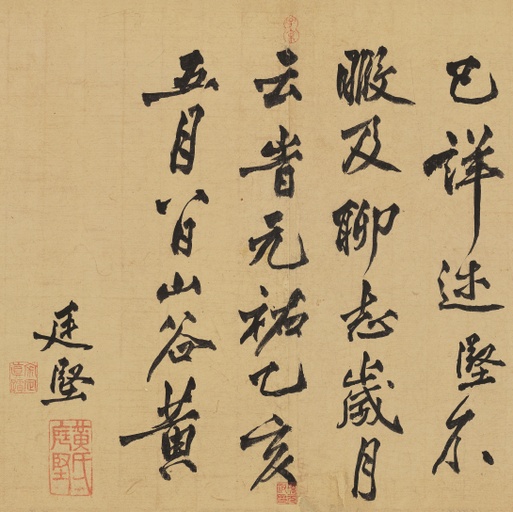 已詳述堅不
暇及聊志歲月
云旹元祐乙亥
五月八日山谷黃
廷堅
黃氏
庭堅